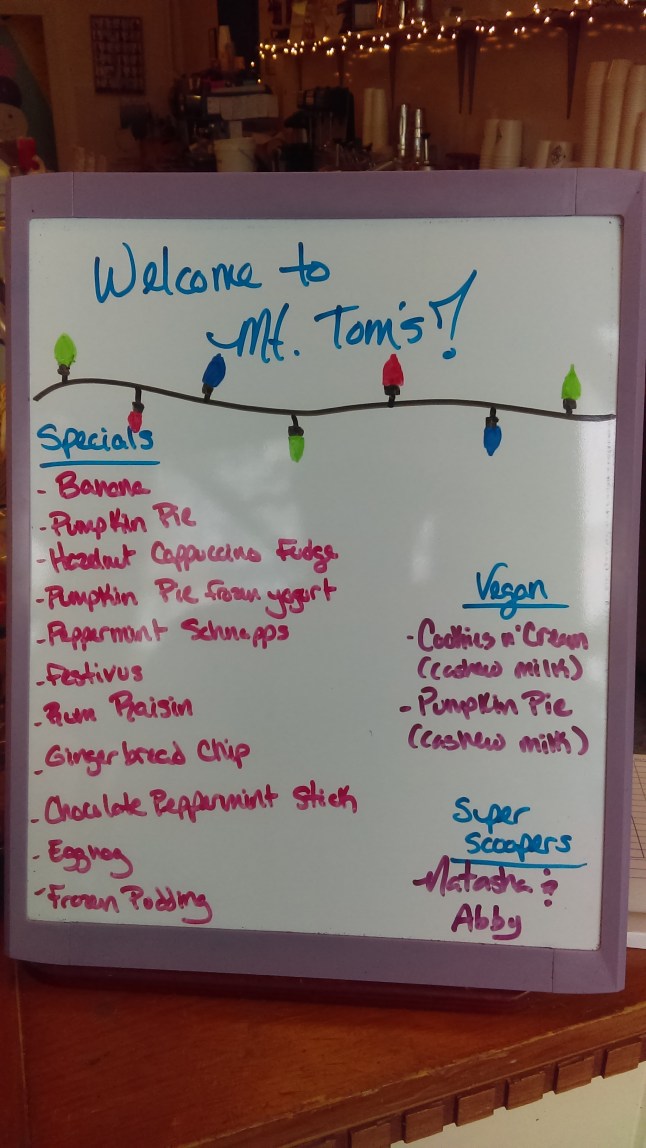 Welcome to
Mt. Tom's!
Specials
- Banana
- Pumpkin Pie
- Hazelnut Cappuccino Fudge
- Pumpkin Pie frozen yogurt
- Peppermint Schnapps
- Festivus
- Rum Raisin
- Gingerbread Chip
- Chocolate Peppermint Stick
- Eggnog
- Frozen Pudding
Vegan
- Cookies n' Cream
(cashew milk)
- Pumpkin Pie
(cashew milk)
Super
Scoopers
Natasha &
Abby